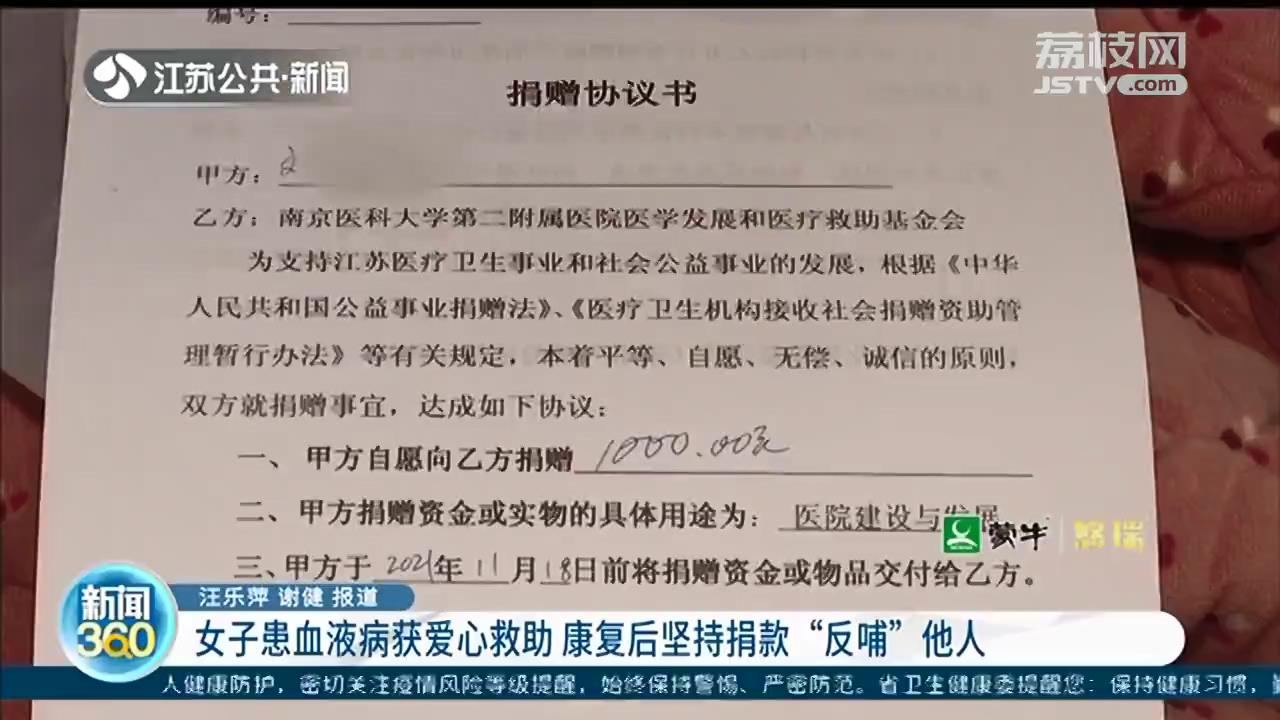 编号：
江苏公共·新闻
荔枝网
JSTV.com
捐赠协议书
甲方：
乙方：南京医科大学第二附属医院医学发展和医疗救助基金会
为支持江苏医疗卫生事业和社会公益事业的发展，根据《中华
人民共和国公益事业捐赠法》、《医疗卫生机构接收社会捐赠资助管
理暂行办法》等有关规定，本着平等、自愿、无偿、诚信的原则，
双方就捐赠事宜，达成如下协议：
一、 甲方自愿向乙方捐赠 1000.00元
二、甲方捐赠资金或实物的具体用途为：医院建设与发展
蒙牛 悠瑞
三、甲方于 2021年 11月18日前将捐赠资金或物品交付给乙方。
新闻
360
汪乐萍 谢健 报道
女子患血液病获爱心救助 康复后坚持捐款“反哺”他人
人健康防护，密切关注疫情风险等级提醒，始终保持警惕、严密防范。省卫生健康委提醒您：保持健康习惯，